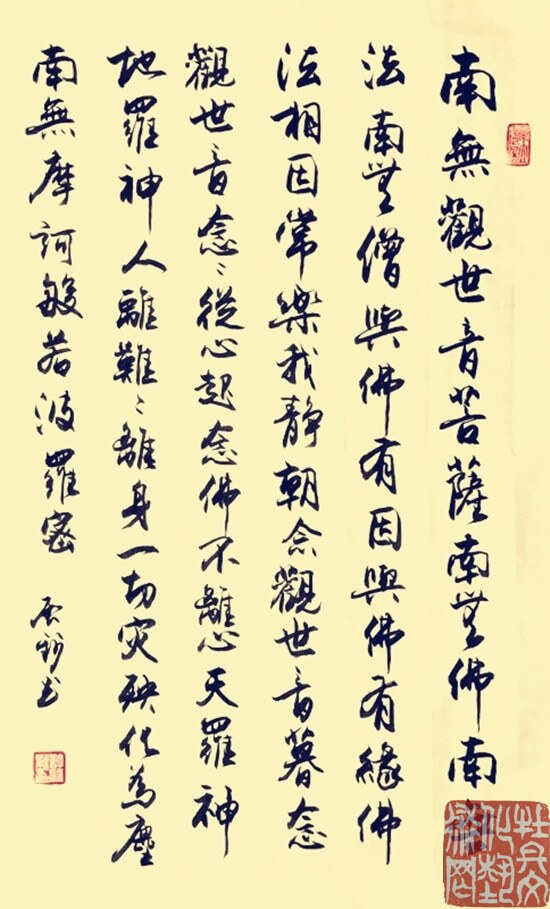 南無觀世音菩薩南無佛南
法南無僧與佛有因與佛有緣佛
法相因常樂我靜朝念觀世音暮念
觀世音念々從心起念佛不離心天羅神
地羅神人離難々離身一切灾殃化為塵
南無摩訶般若波羅密
书